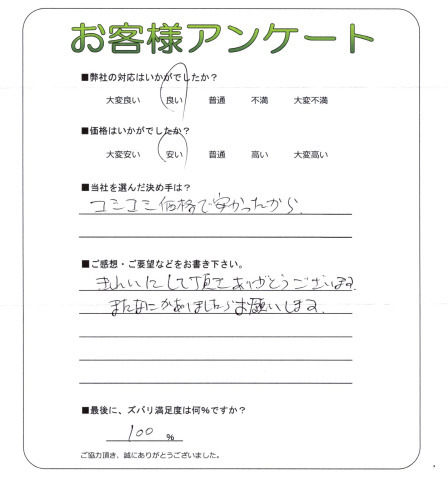 お客様アンケート
■弊社の対応はいかがでしたか?
大変良い 良い 普通 不満 大変不満
■価格はいかがでしたか?
大変安い 安い 普通 高い 大変高い
■当社を選んだ決め手は?
コミコミ価格で安かったから
■ご感想・ご要望などをお書き下さい。
きれいにして頂きありがとうございます。
またなにかありましたらお願いします。
■最後に、ズバリ満足度は何%ですか?
100 %
ご協力頂き、誠にありがとうございました。